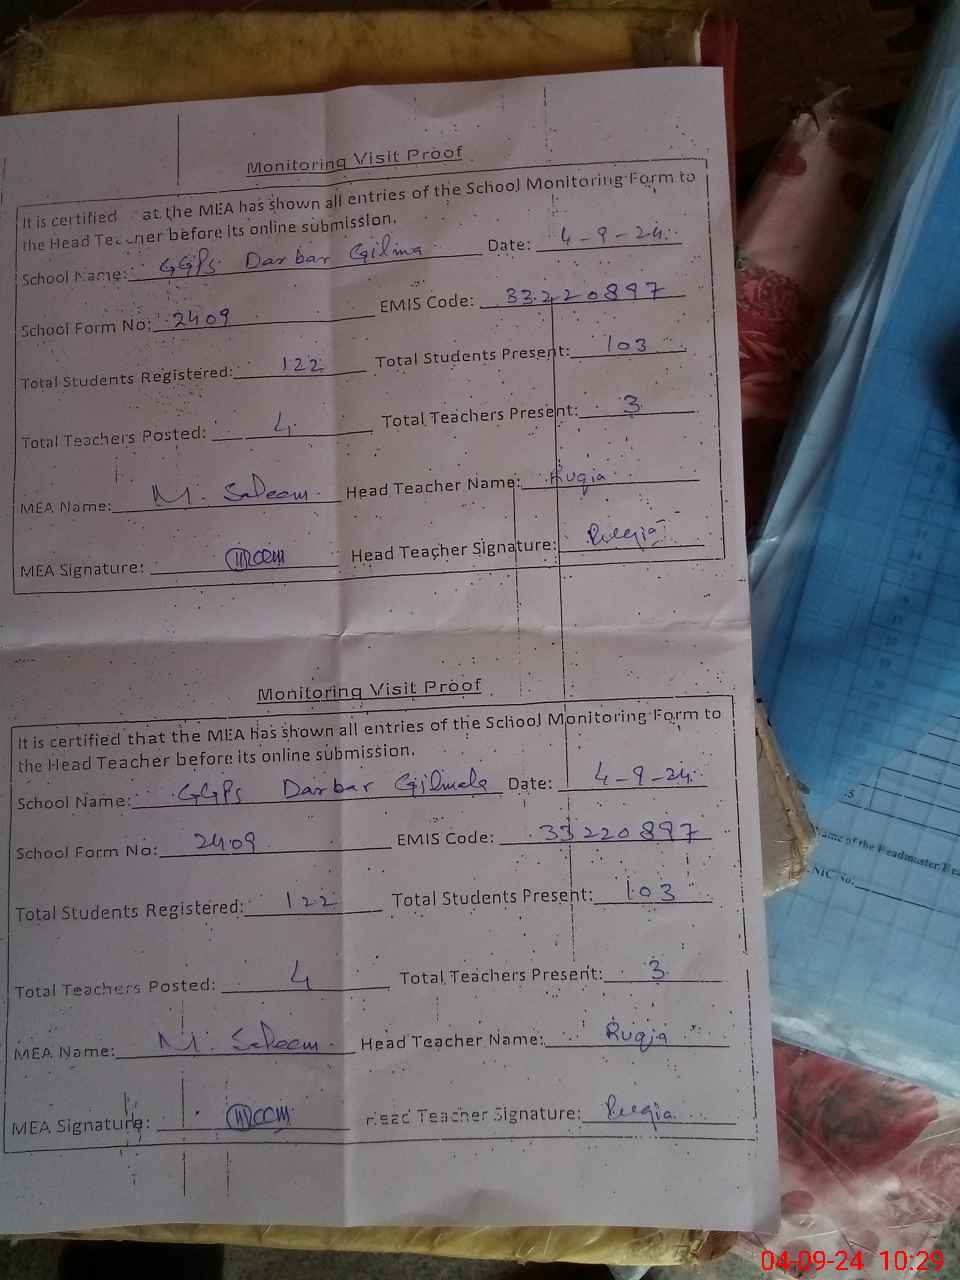 Monitoring Visit Proof
It is certified at the MEA has shown all entries of the School Monitoring Form to
the Head Teacher before its online submission.
School Name: GGPS Darbar Date: 4-9-24
School Form No: 2409 EMIS Code: 33220897
Total Students Registered: 122 Total Students Present: 103
Total Teachers Posted: 4 Total Teachers Present: 3
MEA Name: M. Saleem Head Teacher Name: Ruqia
MEA Signature: Head Teacher Signature: Ruqia
Monitoring Visit Proof
It is certified that the MEA has shown all entries of the School Monitoring Form to
the Head Teacher before its online submission.
School Name: GGPS Darbar Date: 4-9-24
School Form No: 2409 EMIS Code: 33220897
Total Students Registered: 122 Total Students Present: 103
Total Teachers Posted: 4 Total Teachers Present: 3
MEA Name: M. Saleem Head Teacher Name: Ruqia
MEA Signature: Head Teacher Signature: Ruqia
Name of the Headmaster
NIC No:
04-09-24 10:29